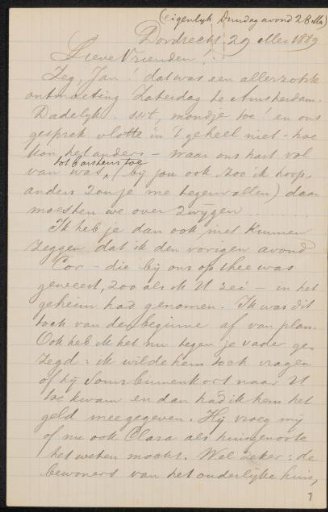 (eigenlijk Dinsdag avond 28 Mei)
Dordrecht. 29 Mei 1889
Lieve Vrienden!
Zeg, Jan! dat was een allerzotste
ontmoeting Zaterdag te Amsterdam.
Dadelijk: sst, mondje toe! en ons
gesprek vlotte in 't geheel niet - hoe
kon het anders - waar ons hart vol
tot barstens toe
van was, (bij jou ook, zoo ik hoop,
anders zou je me tegenvallen) daar
moesten we over zwijgen
Ik heb je dan ook niet kunnen
zeggen dat ik den vorigen avond
Cor - die bij ons op thee was
geweest, zoo als ik U zei - in het
geheim had genomen. Ik was dit
toch van den beginne af van plan.
Ook heb ik het nu tegen je vader ge-
zegd: ik wilde hem toch vragen
of hij soms binnenkort naar U
toe kwam en dan had ik hem het
geld meegegeven. Hij vroeg mij
of nu ook Clara als huisgenoote
het weten mocht. Wel zeker: de
bewoners van het ouderlijke huis,
1